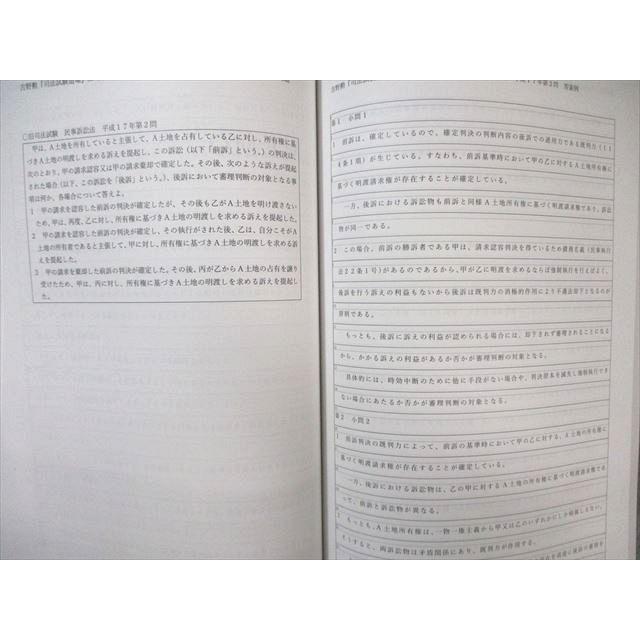 吉野勲『司法試験
○旧司法試験 民事訴訟法 平成17年第2問
甲は、A土地を所有していると主張して、A土地を占有している乙に対し、所有権に基
づきA土地の明渡しを求める訴えを提起し、この訴訟(以下「前訴」という。)の判決は、
次のとおり、甲の請求認容又は甲の請求棄却で確定した。その後、次のような訴えが提起
された場合(以下、この訴訟を「後訴」という。)、後訴において審理判断の対象となる事
項は何か、各場合について答えよ。
1 甲の請求を認容した前訴の判決が確定したが、その後も乙がA土地を明け渡さない
ため、甲は、再度、乙に対し、所有権に基づきA土地の明渡しを求める訴えを提起した。
2 甲の請求を認容した前訴の判決が確定し、その執行がされた後、乙は、自分こそがA
土地の所有者であると主張して、甲に対し、所有権に基づきA土地の明渡しを求める訴
えを提起した。
3 甲の請求を棄却した前訴の判決が確定した。その後、丙が乙からA土地の占有を譲り
受けたため、甲は、丙に対し、所有権に基づきA土地の明渡しを求める訴えを提起し
た。
吉野勲『司法試験
17年第2問 答案例
第1 小問1
1 前訴は、確定しているので、確定判決の判断内容の後訴での通用力である既判力(11
4条1項)が生じている。すなわち、前訴基準時において甲の乙に対するA土地所有権に
基づく明渡請求権が存在することが確定している。
一方、後訴における訴訟物も前訴と同様A土地所有権に基づく明渡請求権であり、訴訟
物が同一である。
2 この場合、前訴の勝訴者である甲は、請求認容判決を得ているため債務名義(民事執行
法22条1号)があるのであるから、甲が乙に明渡を求めるならば強制執行を行えばよく、
後訴を行う訴えの利益もないから後訴は既判力の消極的作用により不適法却下となるのが
原則である。
もっとも、後訴に訴えの利益が認められる場合には、却下されず審理されることになる
から、かかる訴えの利益があるか否かが審理判断の対象となる。
具体的には、時効中断のために他に手段がない場合や、判決原本を滅失し強制執行でき
ない場合にあたるか否かが審理判断の対象となる。
第2 小問2
1 前訴判決の既判力によって、前訴の基準時において甲の乙に対する、A土地の所有権に
基づく明渡請求権が存在することが確定している。
一方、後訴における訴訟物は、乙の甲に対するA土地の所有権に基づく明渡請求権であ
って、前訴と訴訟物が異なる。
2 もっとも、A土地所有権は、一物一権主義から甲又は乙のいずれかにしか帰属しない。
そうすると、両訴訟物は矛盾関係にあり、既判力が作用する。